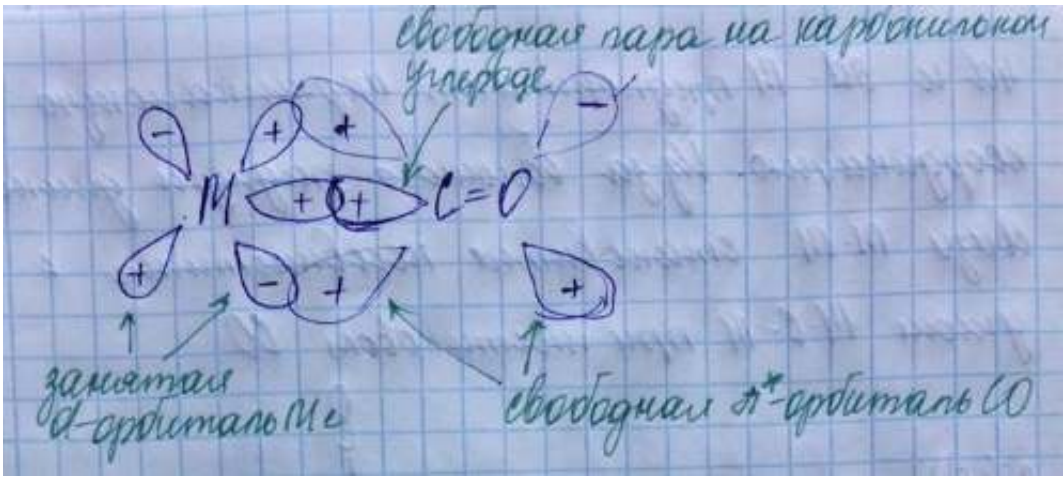 свободная пара на карбонильном
углероде
- + + -
M + + C=O
+ - + +
занятая
d-орбиталь Me
свободная π*-орбиталь CO